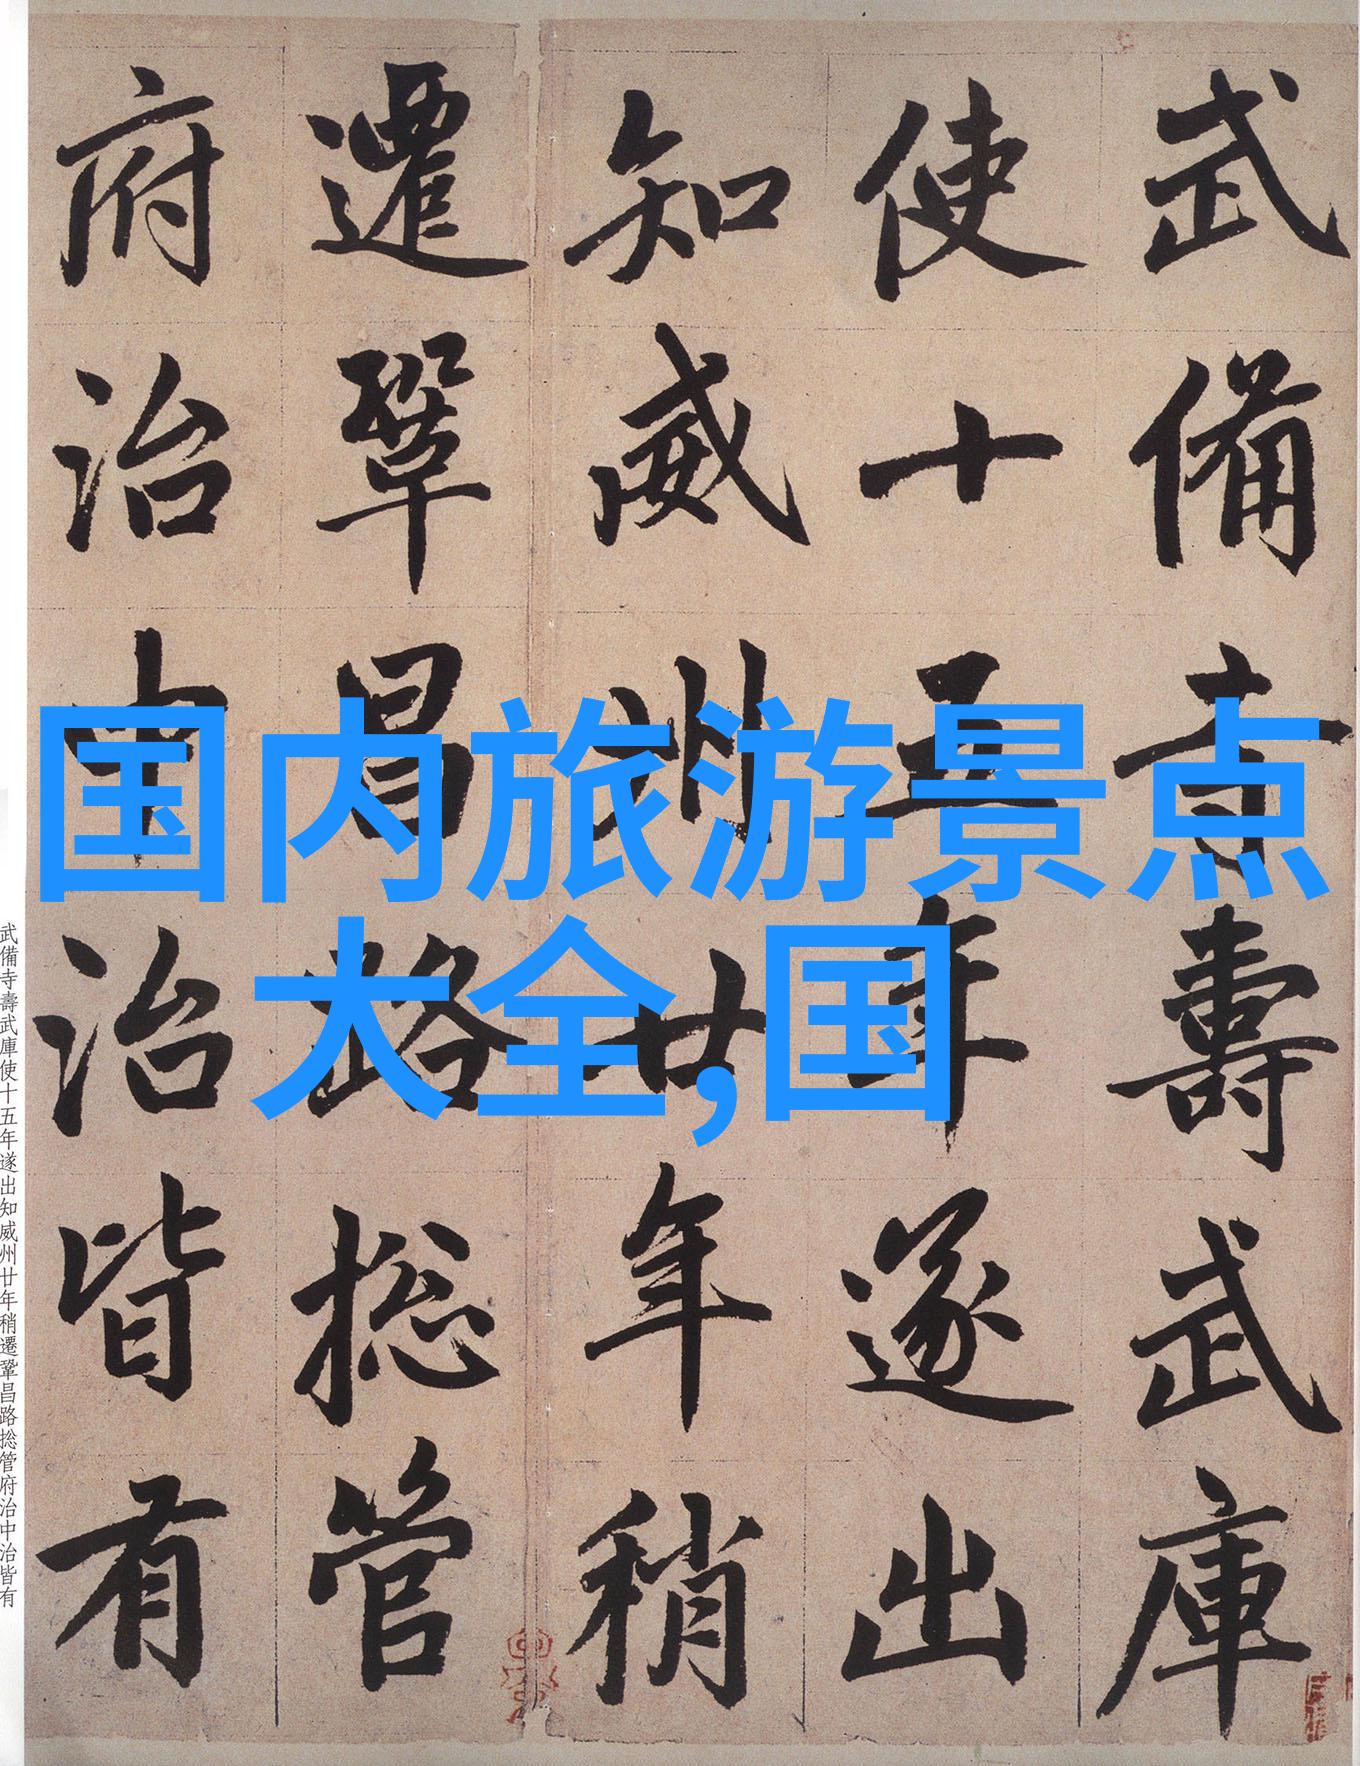 武備寺壽武庫
使十五年遂出
知威州廿年稍
遷鞏昌路捴管
府治中治皆有
国内旅游景点
大全,国
武備寺壽武庫使十五年遂出知威州廿年稍遷鞏昌路捴管府治中治皆有